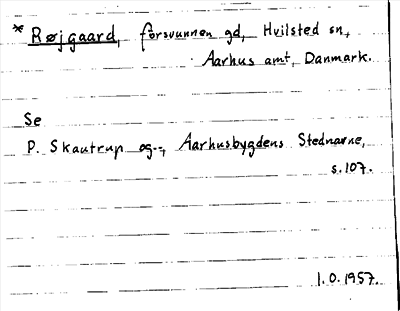 * Røjgaard, forsvunnen gd, Hvilsted sn,
Aarhus amt, Danmark.
Se
P. Skautrup og --, Aarhusbygdens Stednavne,
s. 107.
1.0.1957.